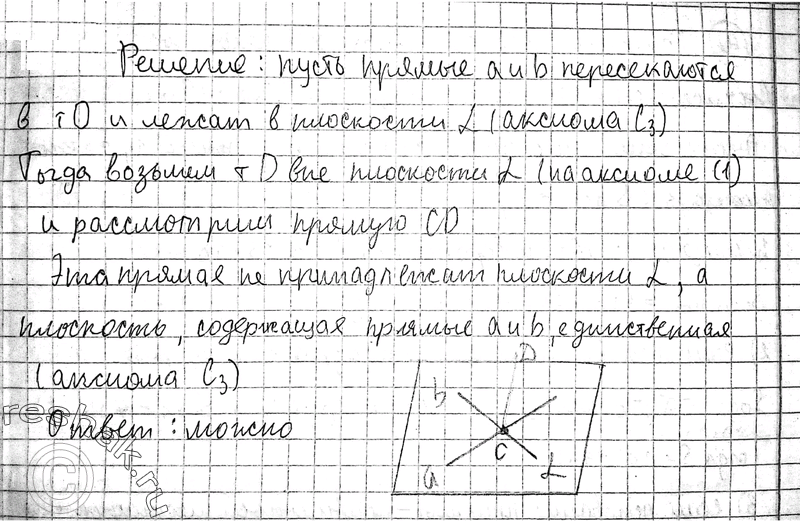 Решение: пусть прямые a и b пересекаются
в т О и лежат в плоскости α (аксиома C₃)
Тогда возьмем т D вне плоскости α (по аксиоме C1)
и рассмотрим прямую CD
Эта прямая не принадлежат плоскости α, а
плоскость, содержащая прямые a и b, единственная
(аксиома C₃)
Ответ: можно
D
b
C
a
α
reshak.ru
©